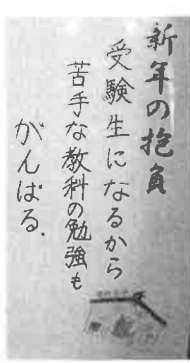 新年の抱負
受験生になるから
苦手な教科の勉強も
がんばる.